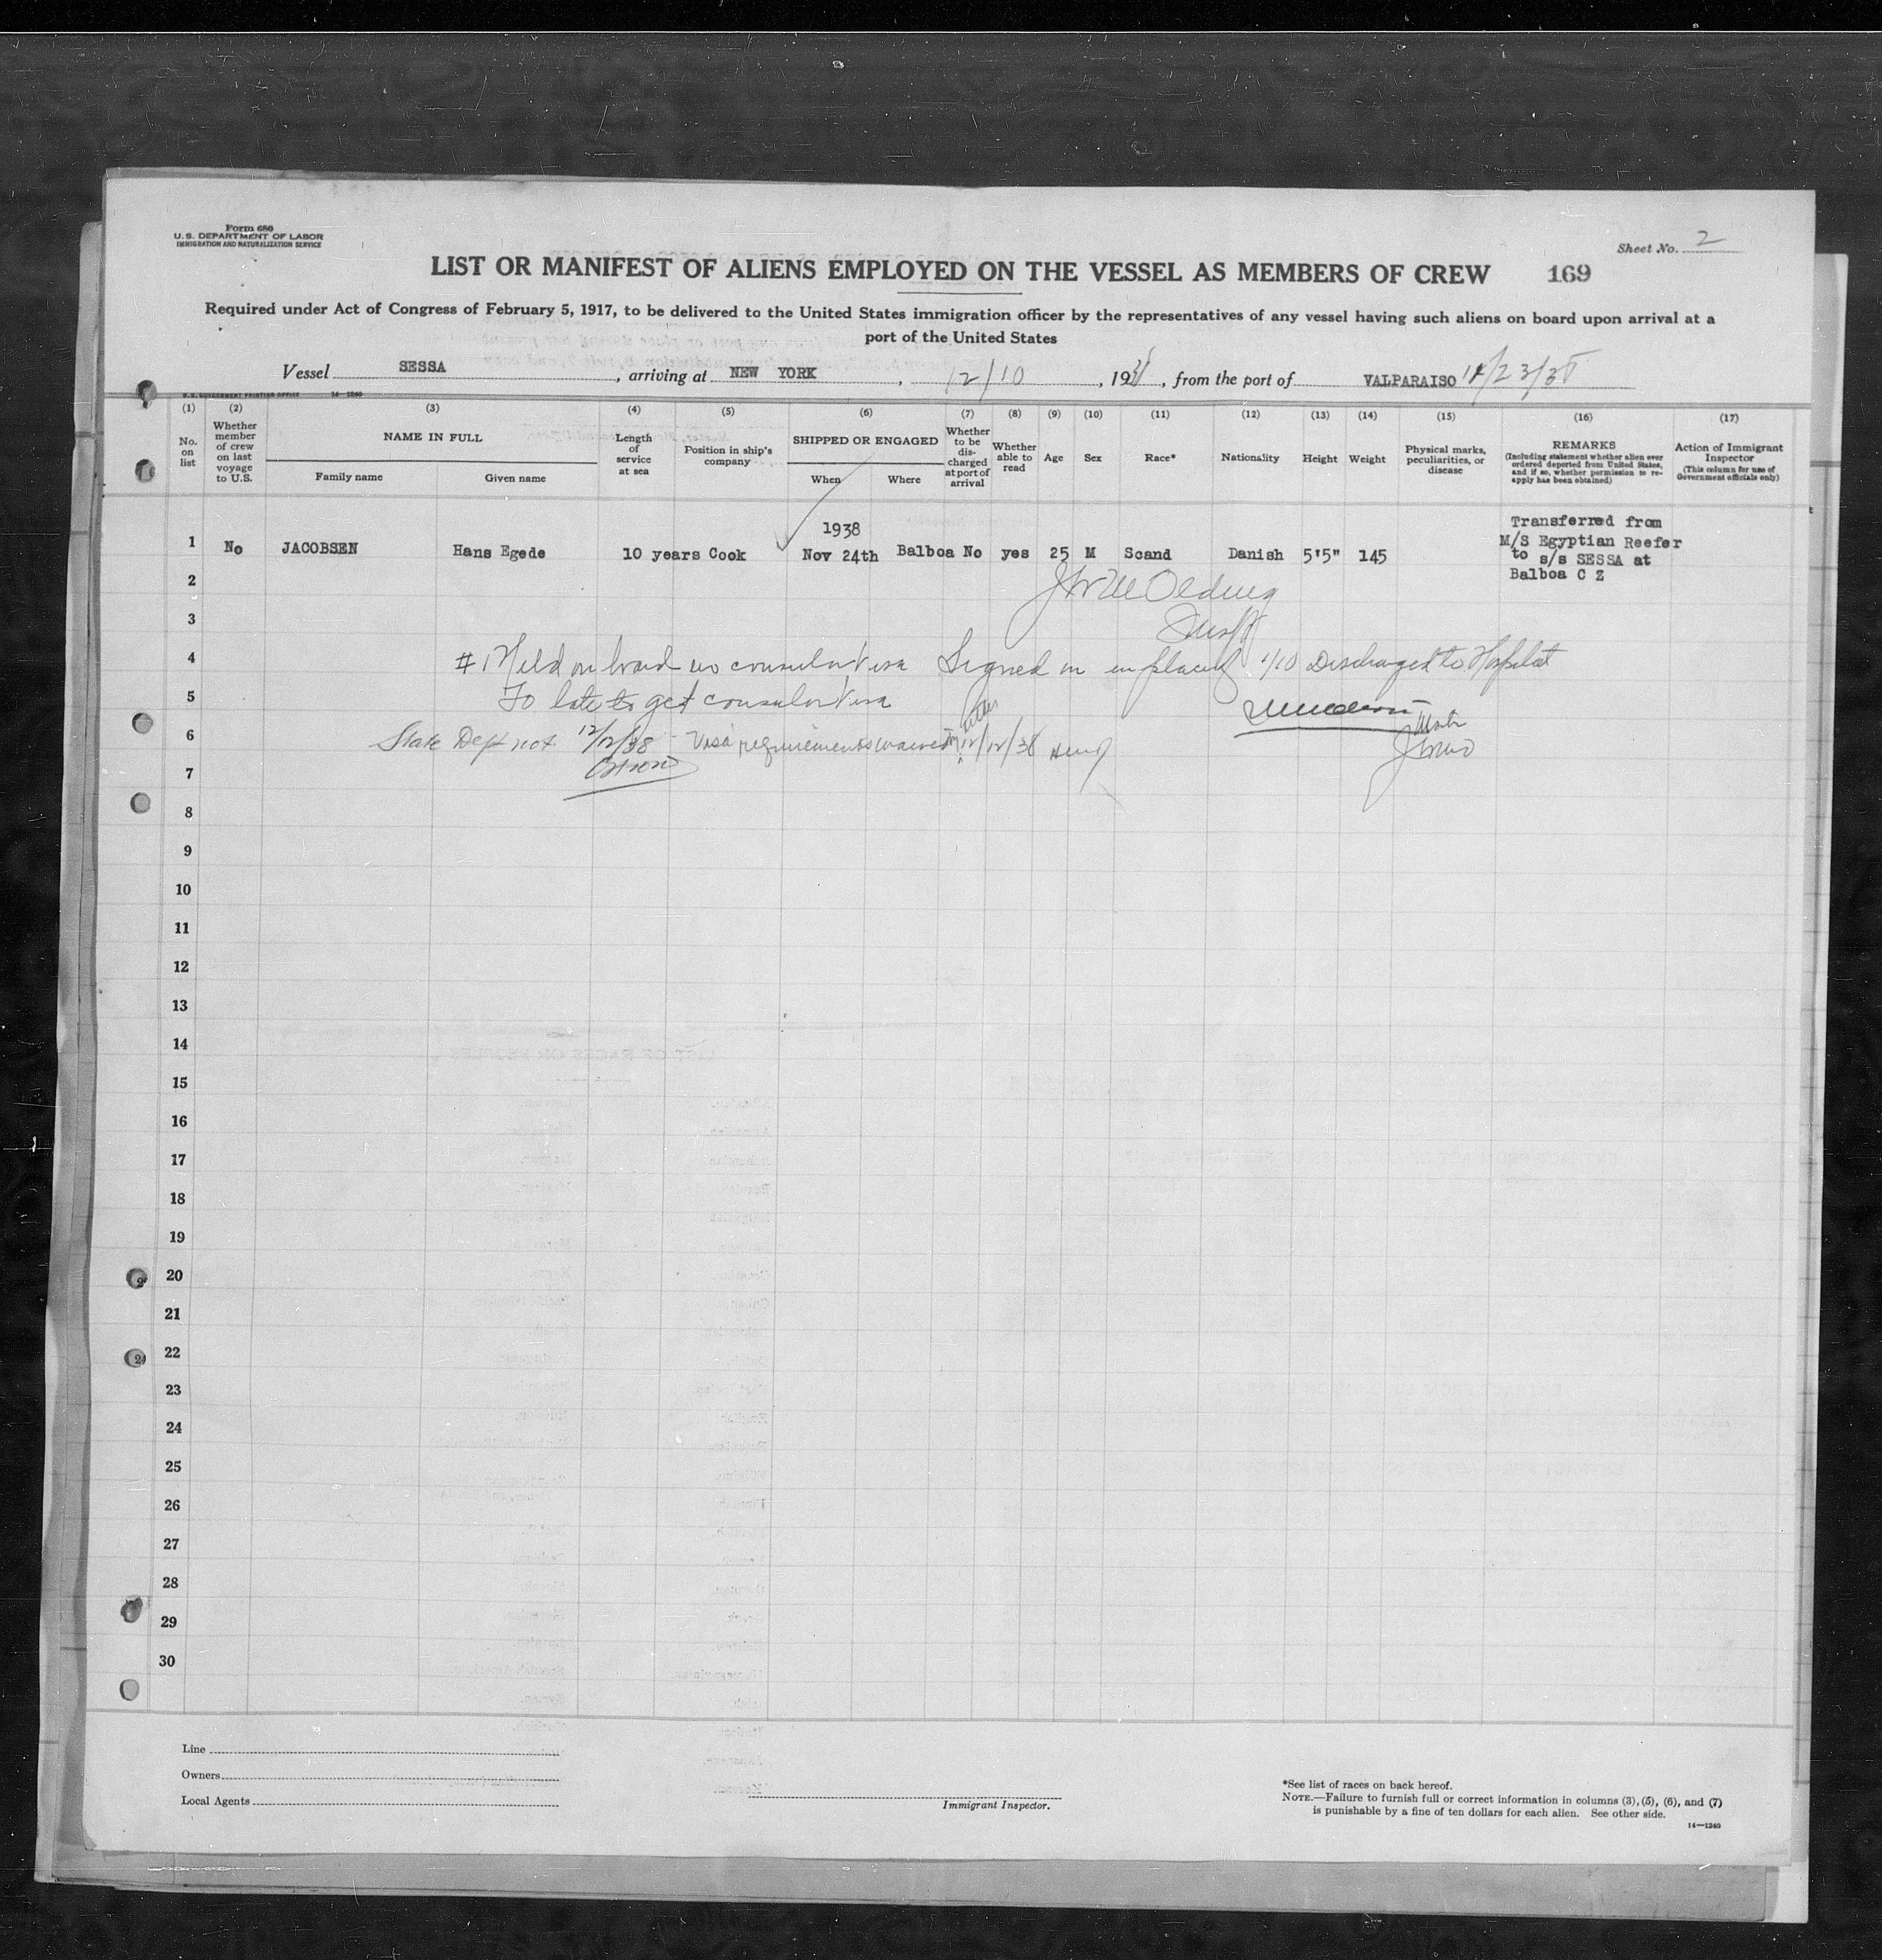 Form 680
U. S. DEPARTMENT OF LABOR
IMMIGRATION AND NATURALIZATION SERVICE
Sheet No. 2
LIST OR MANIFEST OF ALIENS EMPLOYED ON THE VESSEL AS MEMBERS OF CREW 169
Required under Act of Congress of February 5, 1917, to be delivered to the United States immigration officer by the representatives of any vessel having such aliens on board upon arrival at a
port of the United States
Vessel SESSA, arriving at NEW YORK, 12/10, 1938, from the port of VALPARAISO 11/23/38
U. S. GOVERNMENT PRINTING OFFICE 14—1240
(1) (2) (3) (4) (5) (6) (7) (8) (9) (10) (11) (12) (13) (14) (15) (16) (17)
No. on list
Whether member of crew on last voyage to U.S.
NAME IN FULL
Family name
Given name
Length of service at sea
Position in ship's company
SHIPPED OR ENGAGED
When
Where
Whether to be discharged at port of arrival
Whether able to read
Age
Sex
Race*
Nationality
Height
Weight
Physical marks, peculiarities, or disease
REMARKS
(Including statement whether alien ever ordered deported from United States, and if so, whether permission to reapply has been obtained)
Action of Immigrant Inspector
(This column for use of Government officials only)
1 No JACOBSEN Hans Egede 10 years Cook 1938 Nov 24th Balboa No yes 25 M Scand Danish 5'5" 145
Transferred from
M/S Egyptian Reefer
to s/s SESSA at
Balboa C Z
2
3
4 #1 Held on board no consular visa Signed on in place of #10 Discharged to Hospital
5 To late to get consular visa
6 State Dept not 12/12/38 - Visa requirements waived 12/12/38
7
8
9
10
11
12
13
14
15
16
17
18
19
20
21
22
23
24
25
26
27
28
29
30
Line
Owners
Local Agents
Immigrant Inspector.
*See list of races on back hereof.
NOTE.—Failure to furnish full or correct information in columns (3), (5), (6), and (7)
is punishable by a fine of ten dollars for each alien. See other side.
14—1240